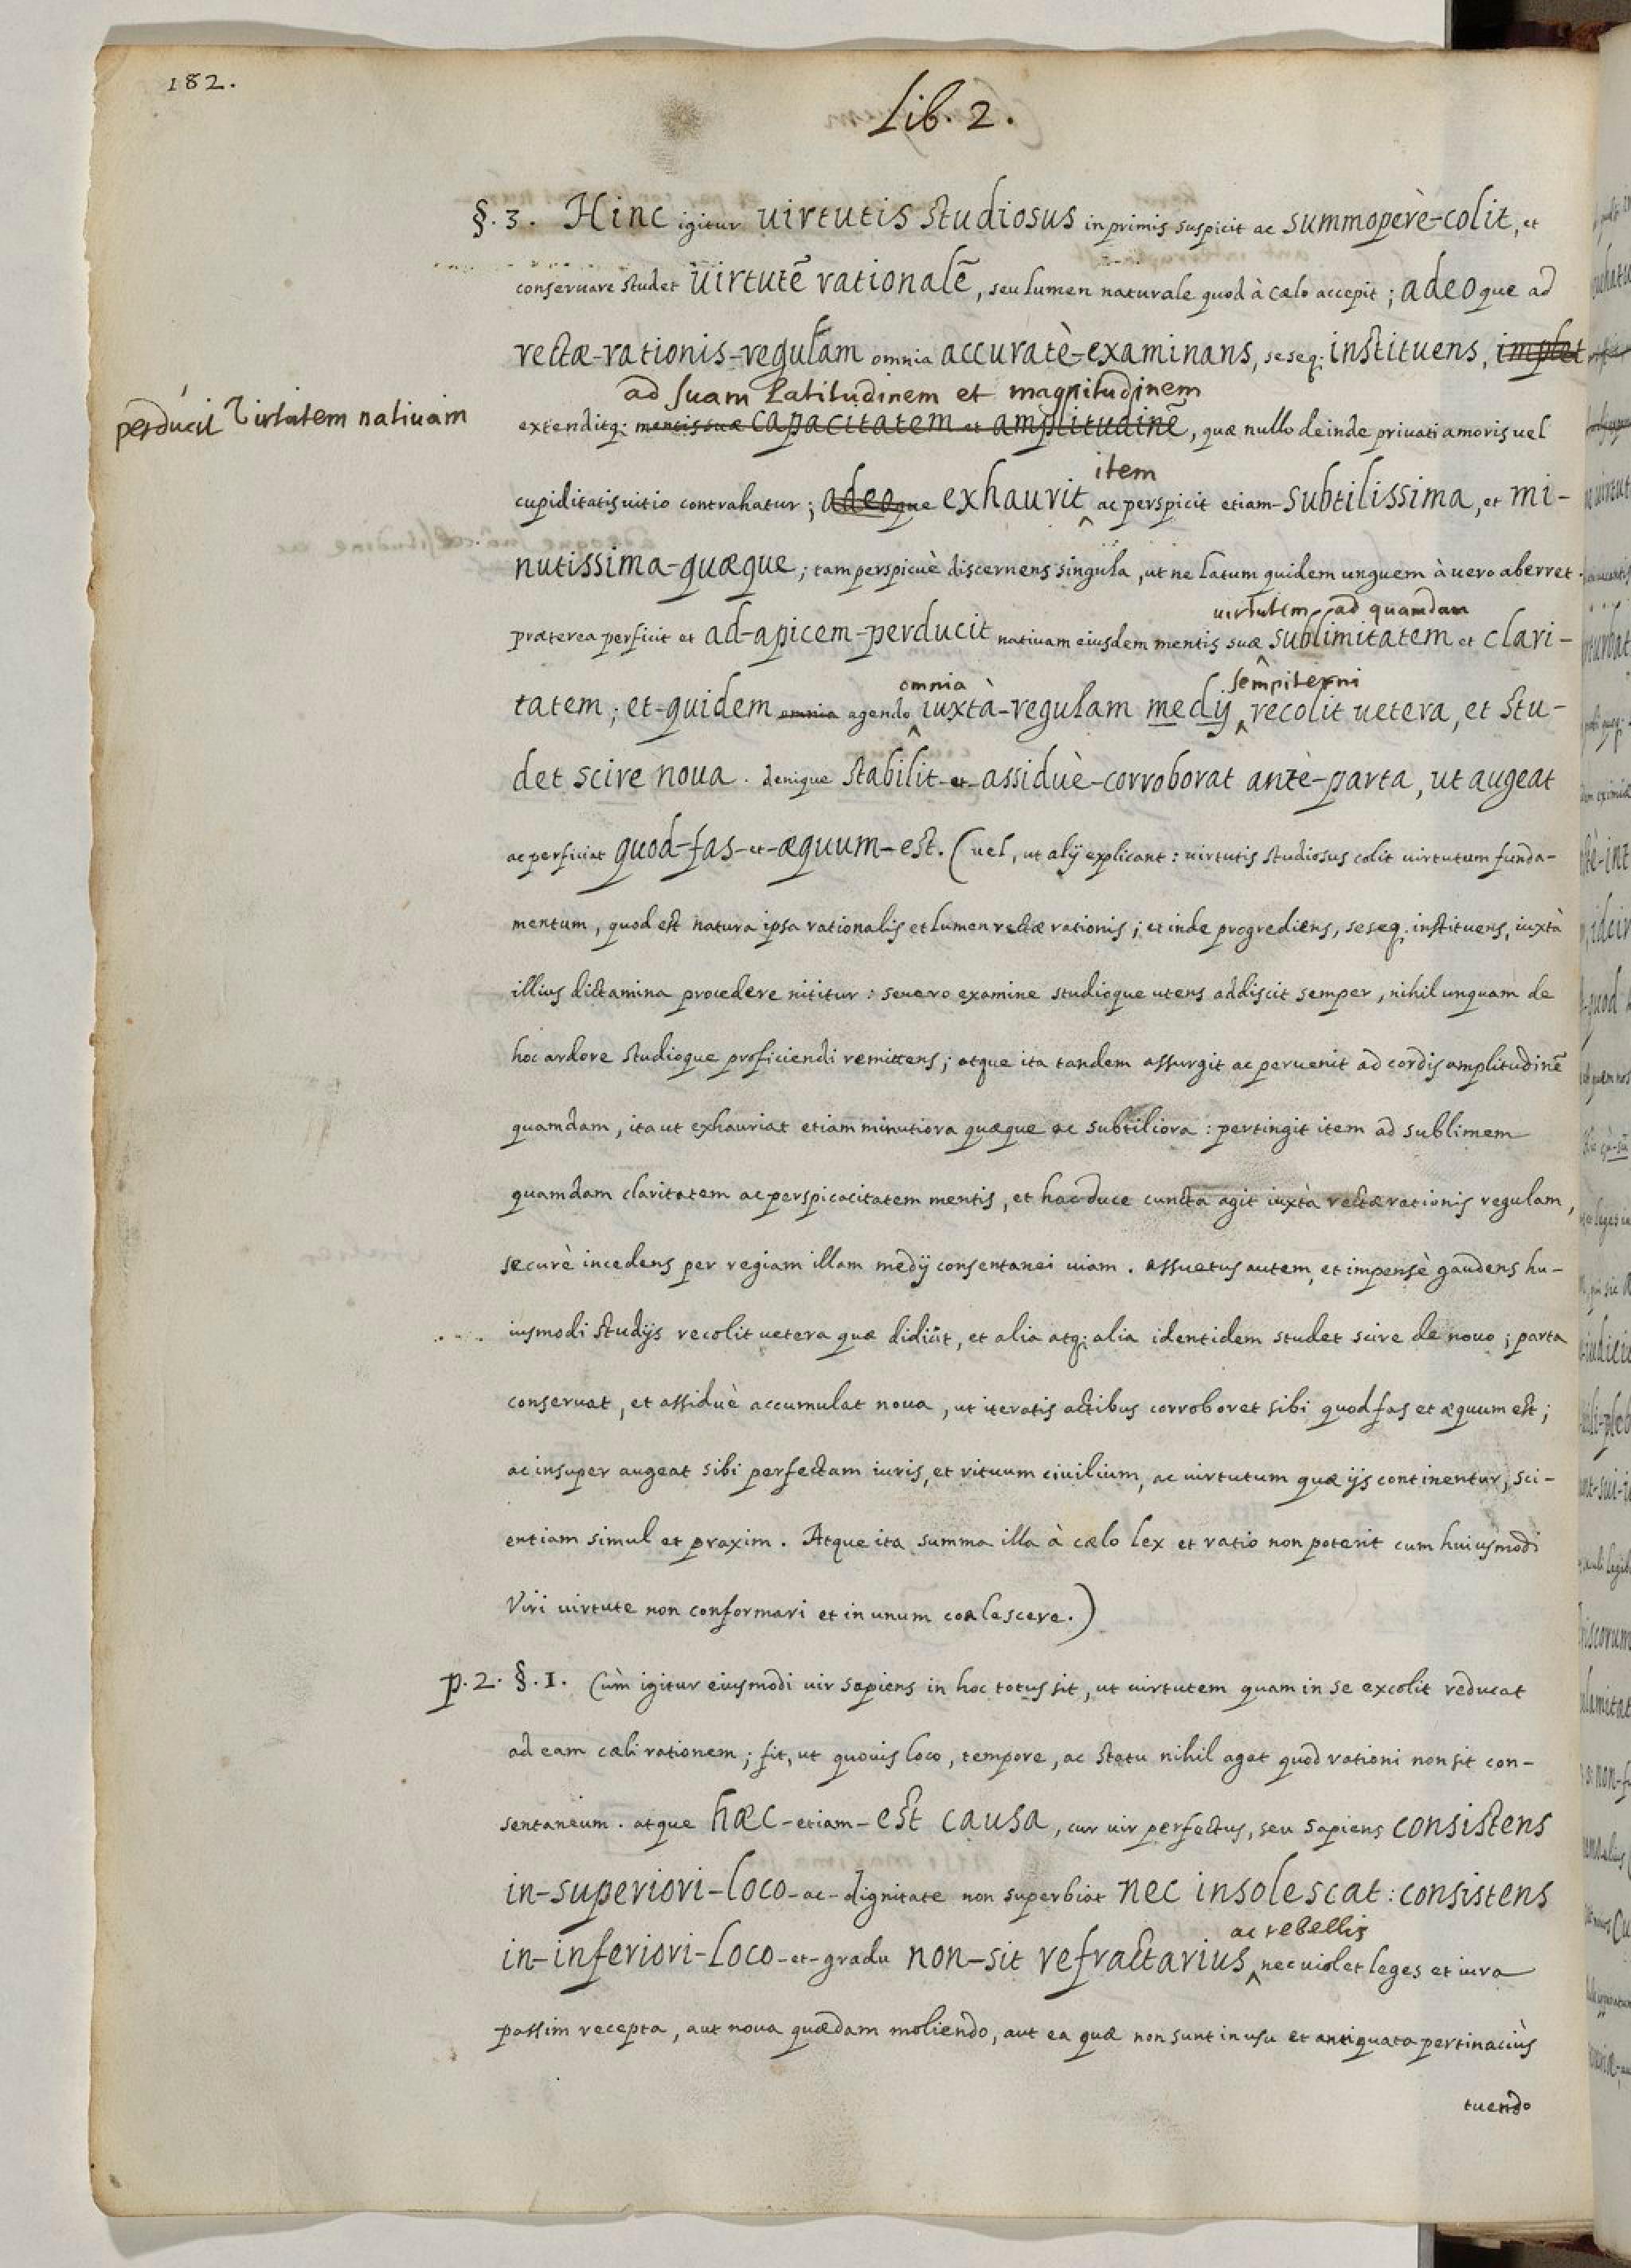 182.
Lib. 2.
§. 3. Hinc igitur uirtutis studiosus inprimis suspicit ac summoperè-colit, et
conseruare studet uirtutē rationalē, seu lumen naturale quod à cælo accepit; adeoque ad
rectæ-rationis-regulam omnia accuratè-examinans, seseq; instituens, implet
ad suam latitudinem et magnitudinem
perducit Virtutem natiuam
extenditq; mentis suæ capacitatem et amplitudinē, quæ nullo deinde priuati amoris uel
item
cupiditatis uitio contrahatur; adeoque exhaurit ‸ ac perspicit etiam-subtilissima, et mi-
nutissima-quæque; tam perspicuè discernens singula, ut ne latum quidem unguem à uero aberret.
uirtutem ad quamdam
præterea perficit et ad-apicem-perducit natiuam eiusdem mentis suæ ‸ sublimitatem et clari-
omnia sempiterni
tatem; et-quidem omnia agendo ‸ iuxtà-regulam medij ‸ recolit uetera, et stu-
det scire noua. denique stabilit-et-assiduè-corroborat antè-parta, ut augeat
ac perficiat quod-fas-et-æquum-est. (uel, ut alij explicant: uirtutis studiosus colit uirtutum funda-
mentum, quod est natura ipsa rationalis et lumen rectæ rationis; et inde progrediens, seseq; instituens, iuxtà
illius dictamina procedere nititur: seuero examine studioque utens addiscit semper, nihil unquam de
hoc ardore studioque proficiendi remittens; atque ita tandem assurgit ac peruenit ad cordis amplitudinē
quamdam, ita ut exhauriat etiam minutiora quæque ac subtiliora: pertingit item ad sublimem
quamdam claritatem ac perspicacitatem mentis, et hac duce cuncta agit iuxtà rectæ rationis regulam,
securè incedens per regiam illam medij consentanei uiam. assuetus autem, et impensè gaudens hu-
iusmodi studijs recolit uetera quæ didicit, et alia atq; alia identidem studet scire de nouo; parta
conseruat, et assiduè accumulat noua, ut iteratis actibus corroboret sibi quod fas et æquum est;
ac insuper augeat sibi perfectam iuris, et rituum ciuilium, ac uirtutum quæ ijs continentur, sci-
entiam simul et praxim. Atque ita summa illa à cælo lex et ratio non poterit cum huiusmodi
Viri uirtute non conformari et in unum coalescere.)
p. 2. §. 1. Cùm igitur eiusmodi uir sapiens in hoc totus sit, ut uirtutem quam in se excolit reducat
ad eam cæli rationem; fit, ut quouis loco, tempore, ac statu nihil agat quod rationi non sit con-
sentaneum. atque hæc-etiam-est causa, cur uir perfectus, seu sapiens consistens
in-superiori-loco-ac-dignitate non superbiat nec insolescat: consistens
ac rebellis
in-inferiori-loco-et-gradu non-sit refractarius ‸ nec uiolet leges et iura
passim recepta, aut noua quædam moliendo, aut ea quæ non sunt in usu et antiquata pertinaciùs
tuendo